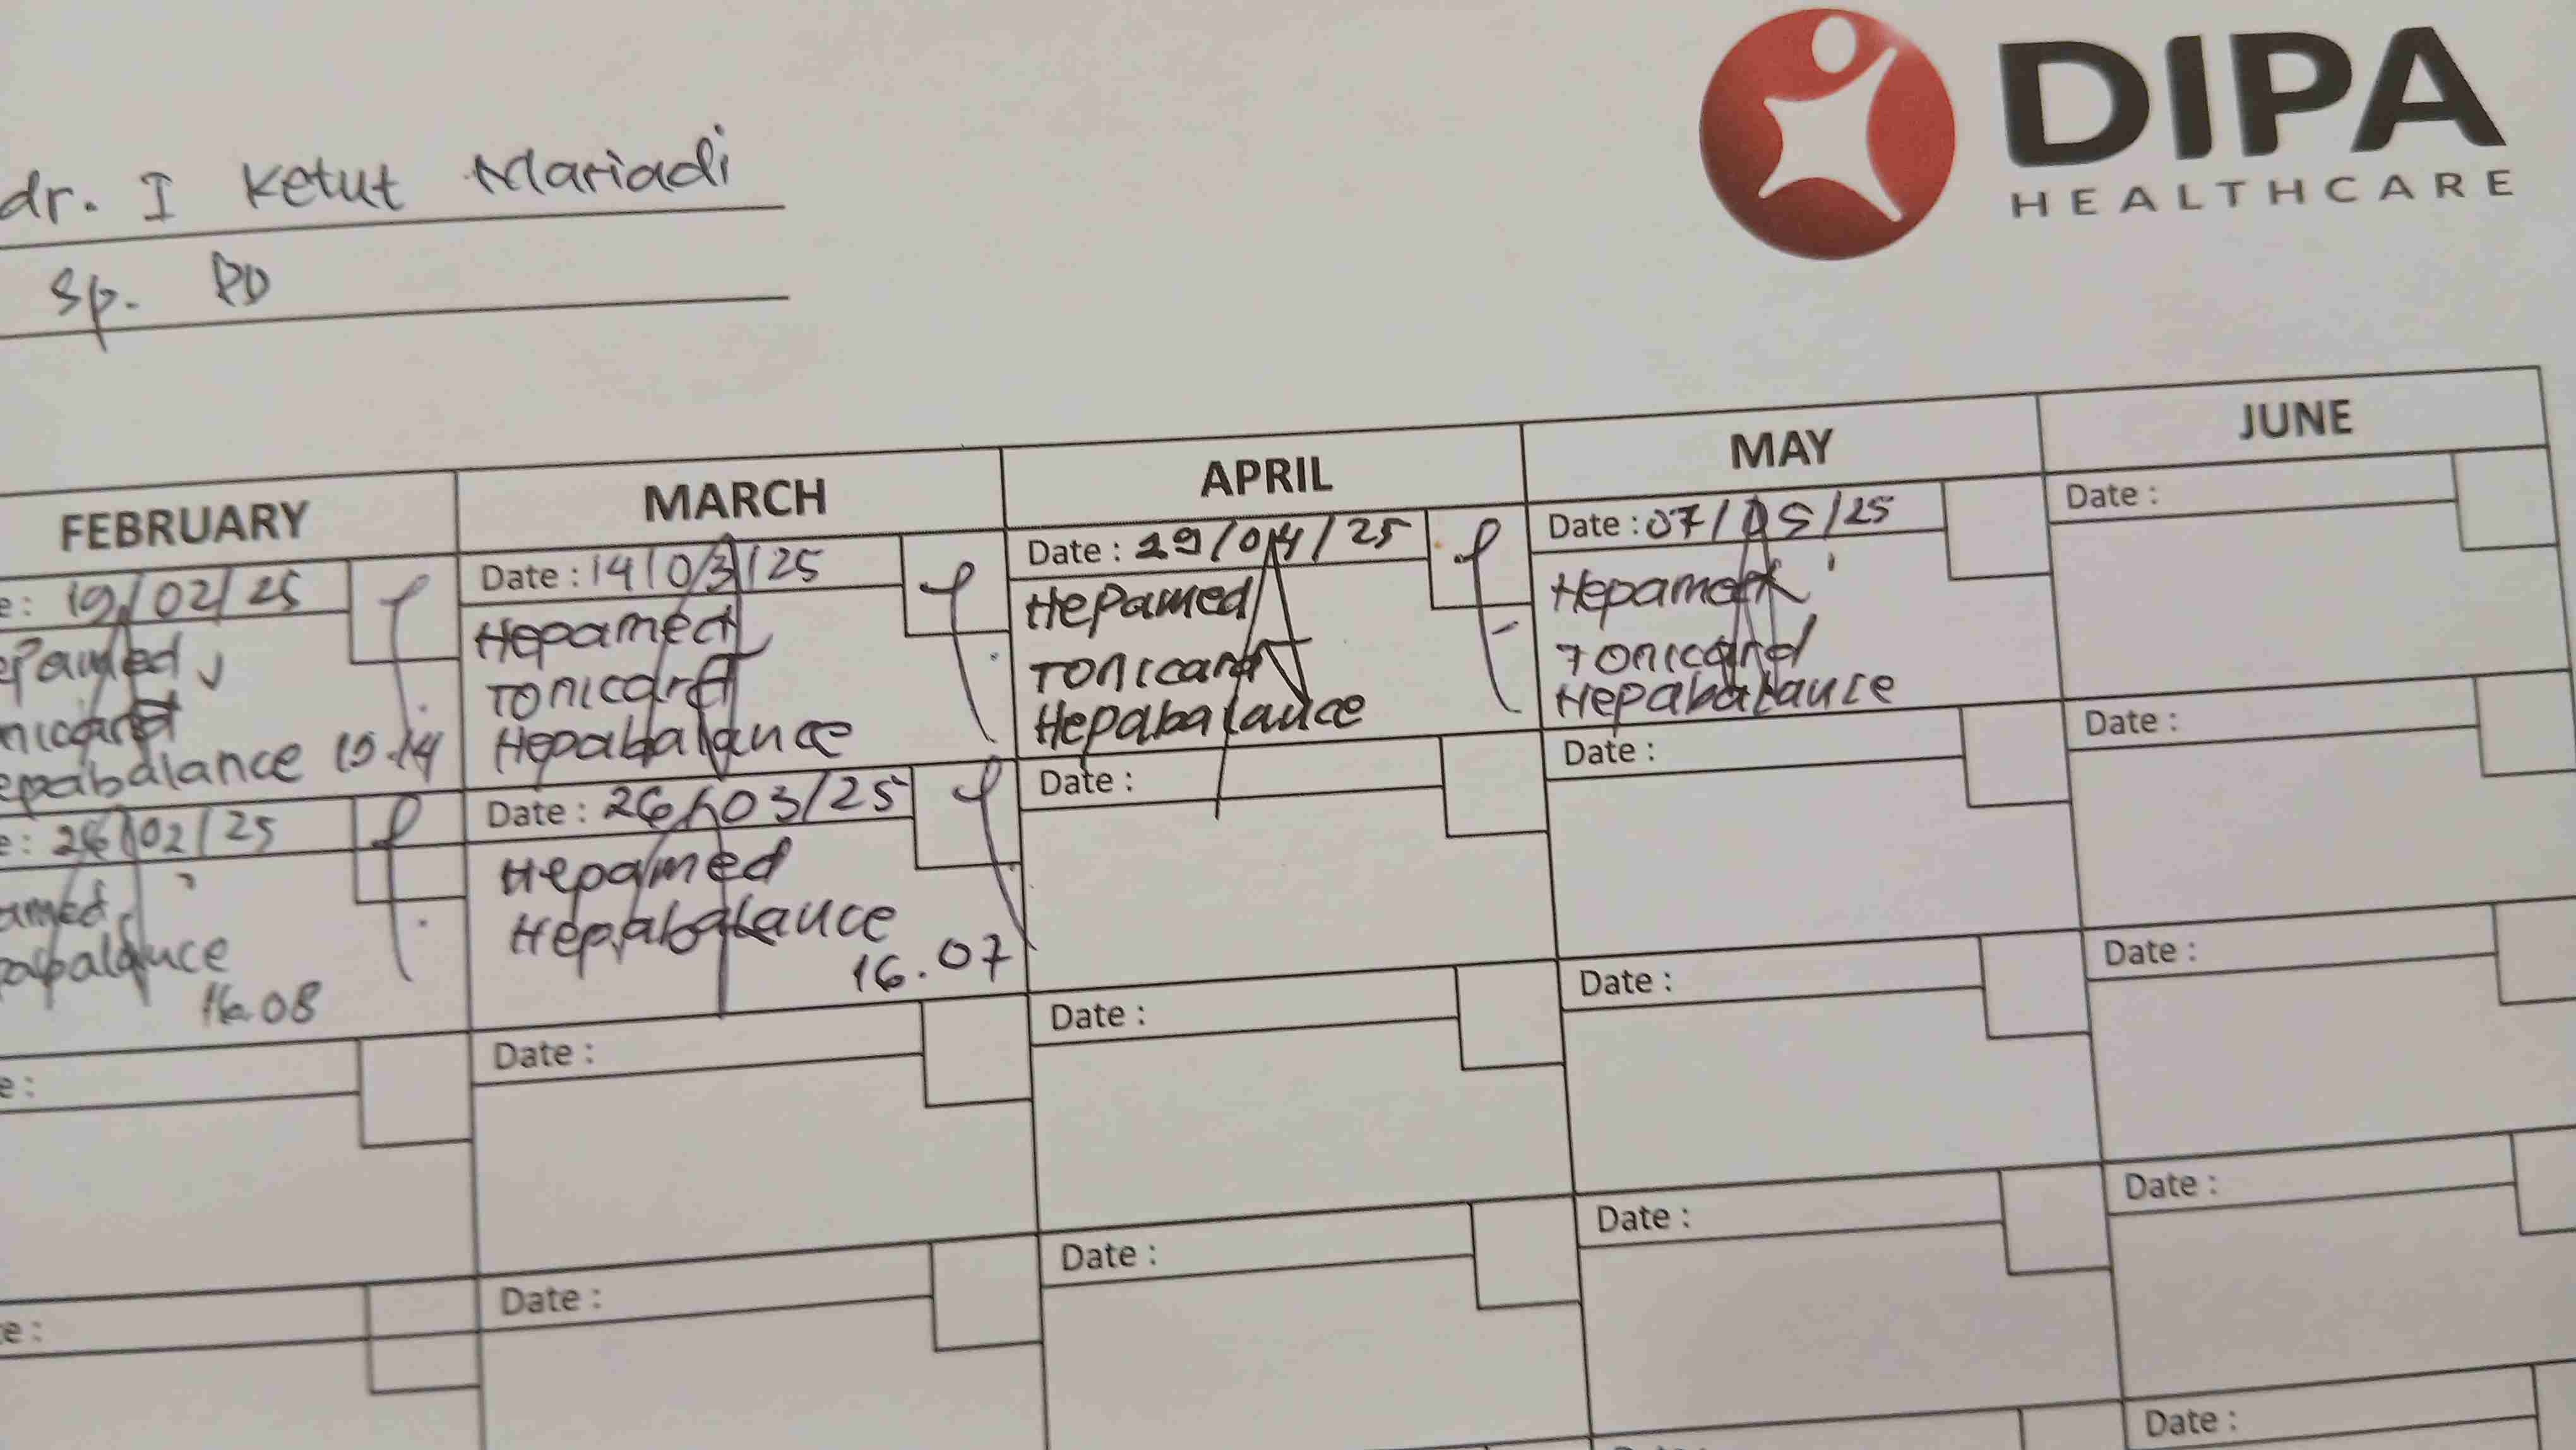 DIPA
HEALTHCARE
dr. I Ketut Mariadi
Sp. PD
FEBRUARY
MARCH
APRIL
MAY
JUNE
e: 19/02/25
epamed
nicard
epabalance 15.14
Date : 14/03/25
Hepamed
Tonicard
Hepabalance
Date : 29/04/25
Hepamed
Tonicard
Hepabalance
Date : 07/05/25
Hepamed
Tonicard
Hepabalance
Date :
e: 26/02/25
amed
pabalance
16.08
Date : 26/03/25
Hepamed
Hepabalance
16.07
Date :
Date :
Date :
e:
Date :
Date :
Date :
Date :
te:
Date :
Date :
Date :
Date :
Date :